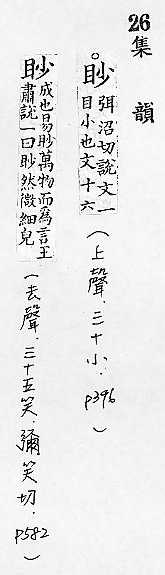 26
集韻
。眇 弭沼切說文一
目小也文十六
（上聲．三十小．p396）
眇 成也易眇萬物而爲言王
肅說一曰眇然微細皃
（去聲．三十五笑．彌笑切．p582）